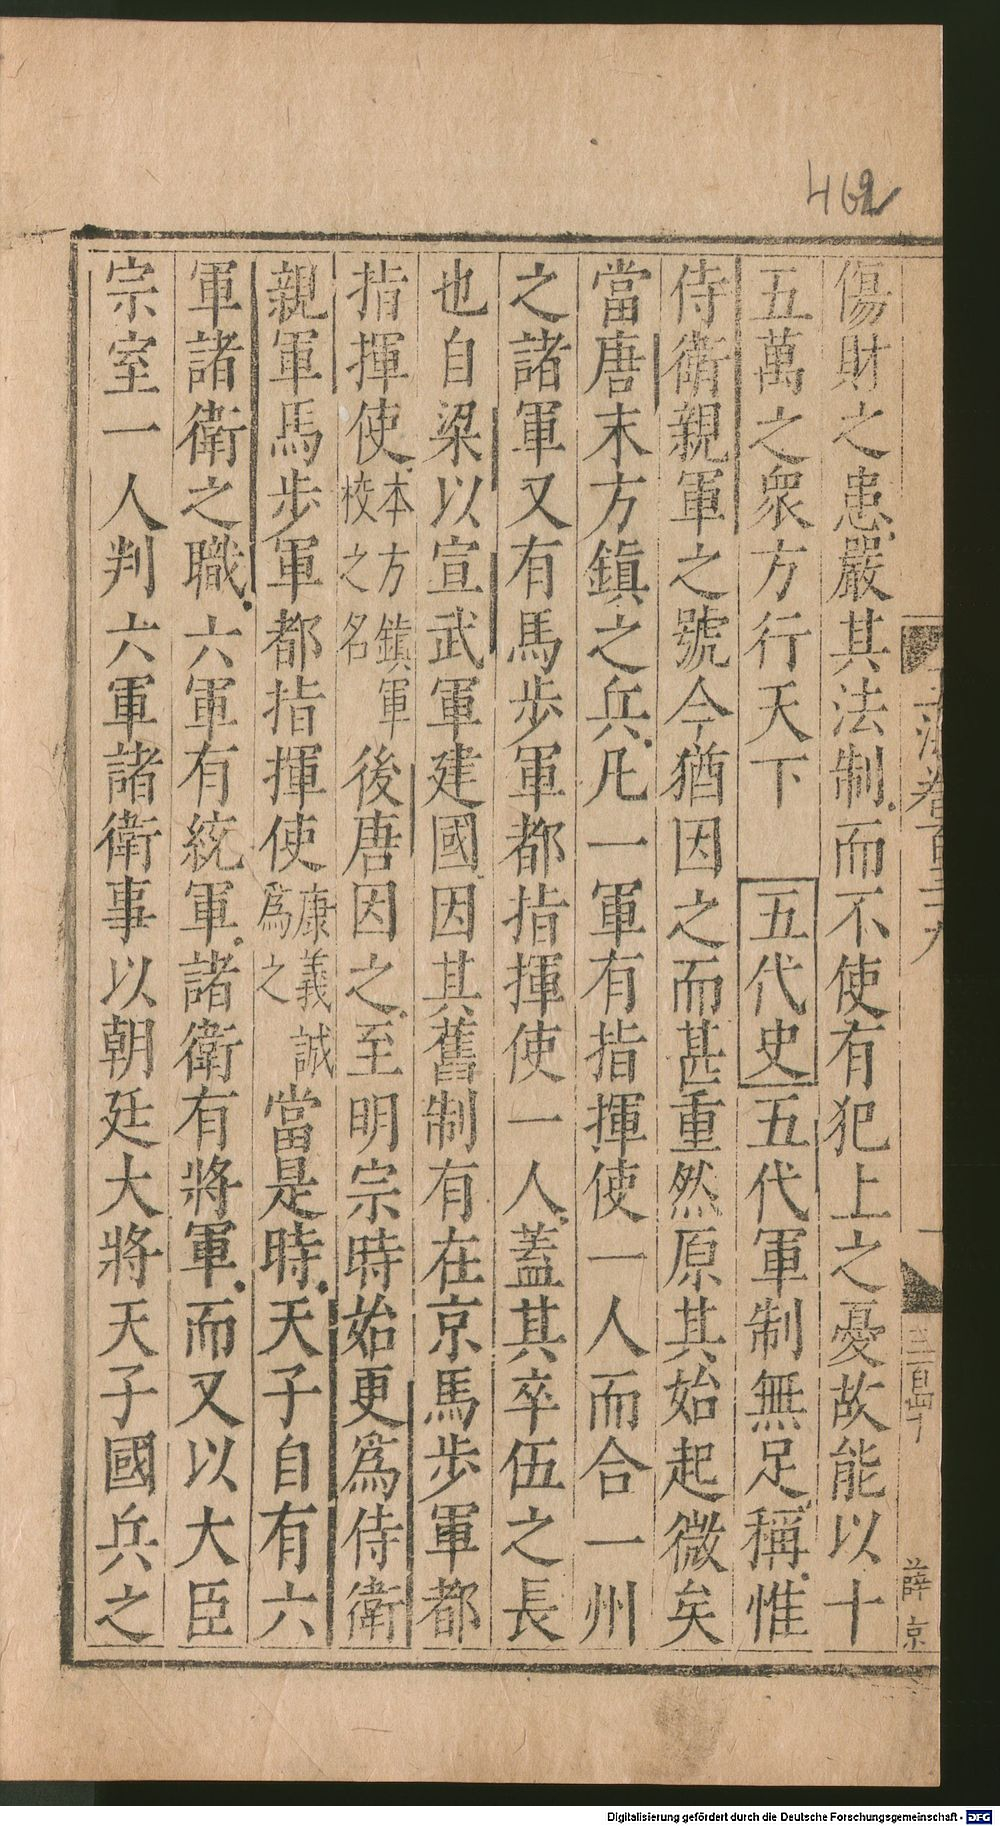 462
傷財之患嚴其法制而不使有犯上之憂故能以十
五萬之衆方行天下　五代史五代軍制無足稱惟
侍衛親軍之號今猶因之而甚重然原其始起微矣
當唐末方鎮之兵凡一軍有指揮使一人而合一州
之諸軍又有馬步軍都指揮使一人蓋其卒伍之長
也自梁以宣武軍建國因其舊制有在京馬步軍都
指揮使本方鎮軍校之名後唐因之至明宗時始更爲侍衛
親軍馬步軍都指揮使康義誠爲之當是時天子自有六
軍諸衛之職六軍有統軍諸衛有將軍而又以大臣
宗室一人判六軍諸衛事以朝廷大將天子國兵之
薛京
Digitalisierung gefördert durch die Deutsche Forschungsgemeinschaft - DFG